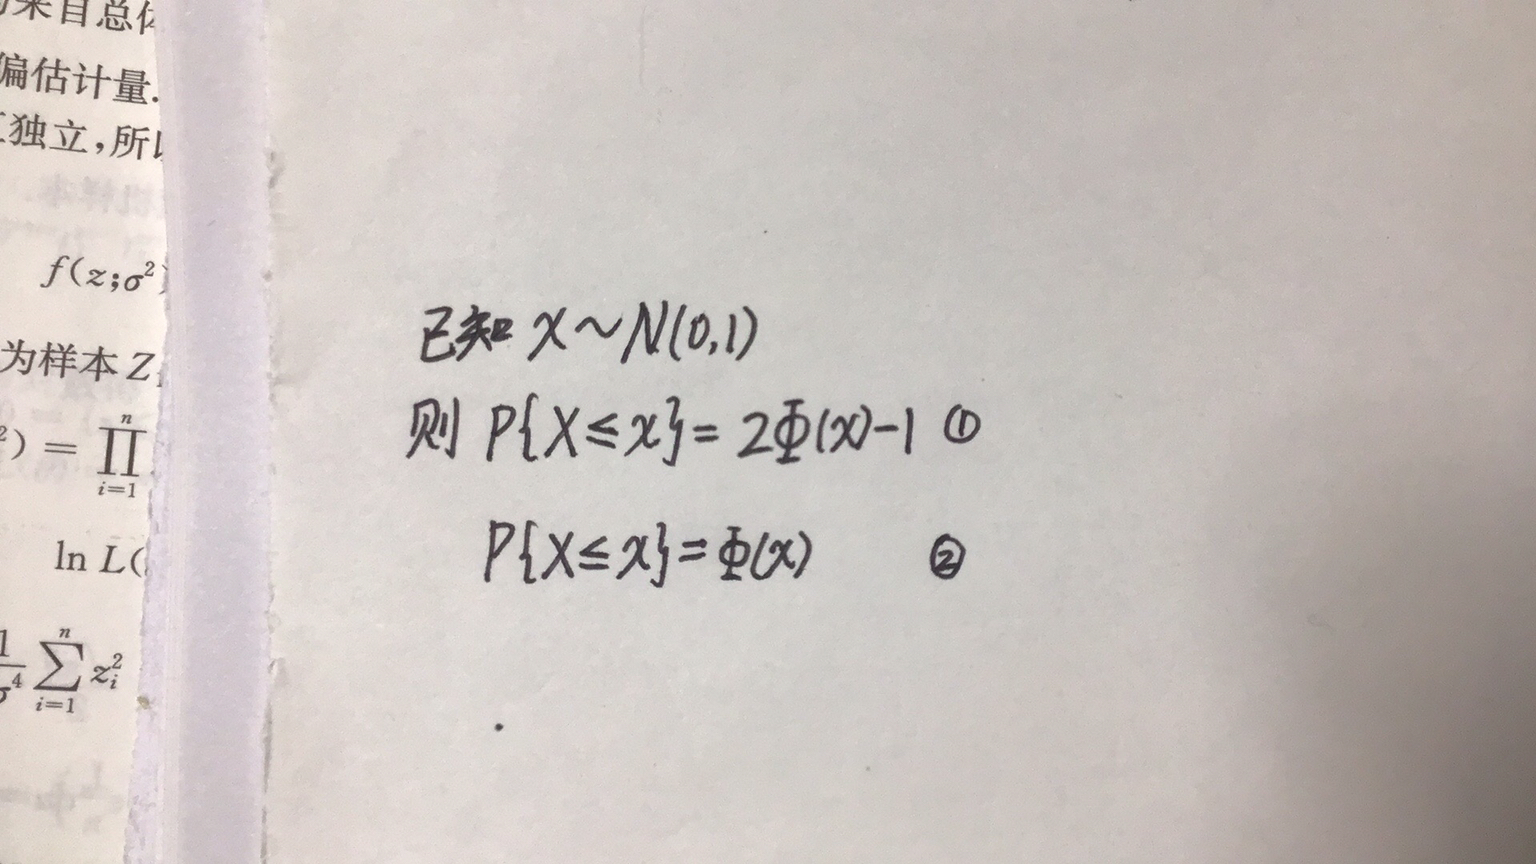 来自总体
偏估计量.
独立,所以
f(z;σ²)
为样本 Z
²) = ∏ i=1 n
ln L(
1 σ⁴ ∑ i=1 n z_i²
已知 X~N(0,1)
则 P{X≤x}=2Φ(x)-1 ①
P{X≤x}=Φ(x) ②